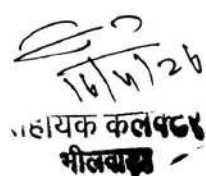 16/4/26
सहायक कलक्टर
भीलवाड़ा